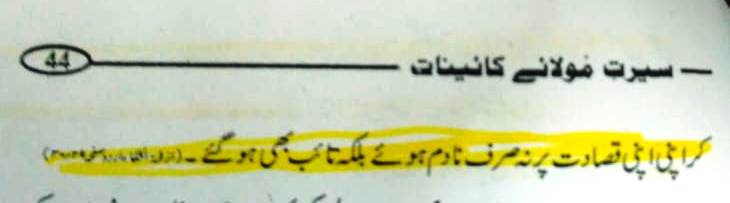 سیرت مولائے کائنات
44
کر اپنی اپنی قصادت پر نہ صرف نادم ہوئے بلکہ تائب بھی ہو گئے۔